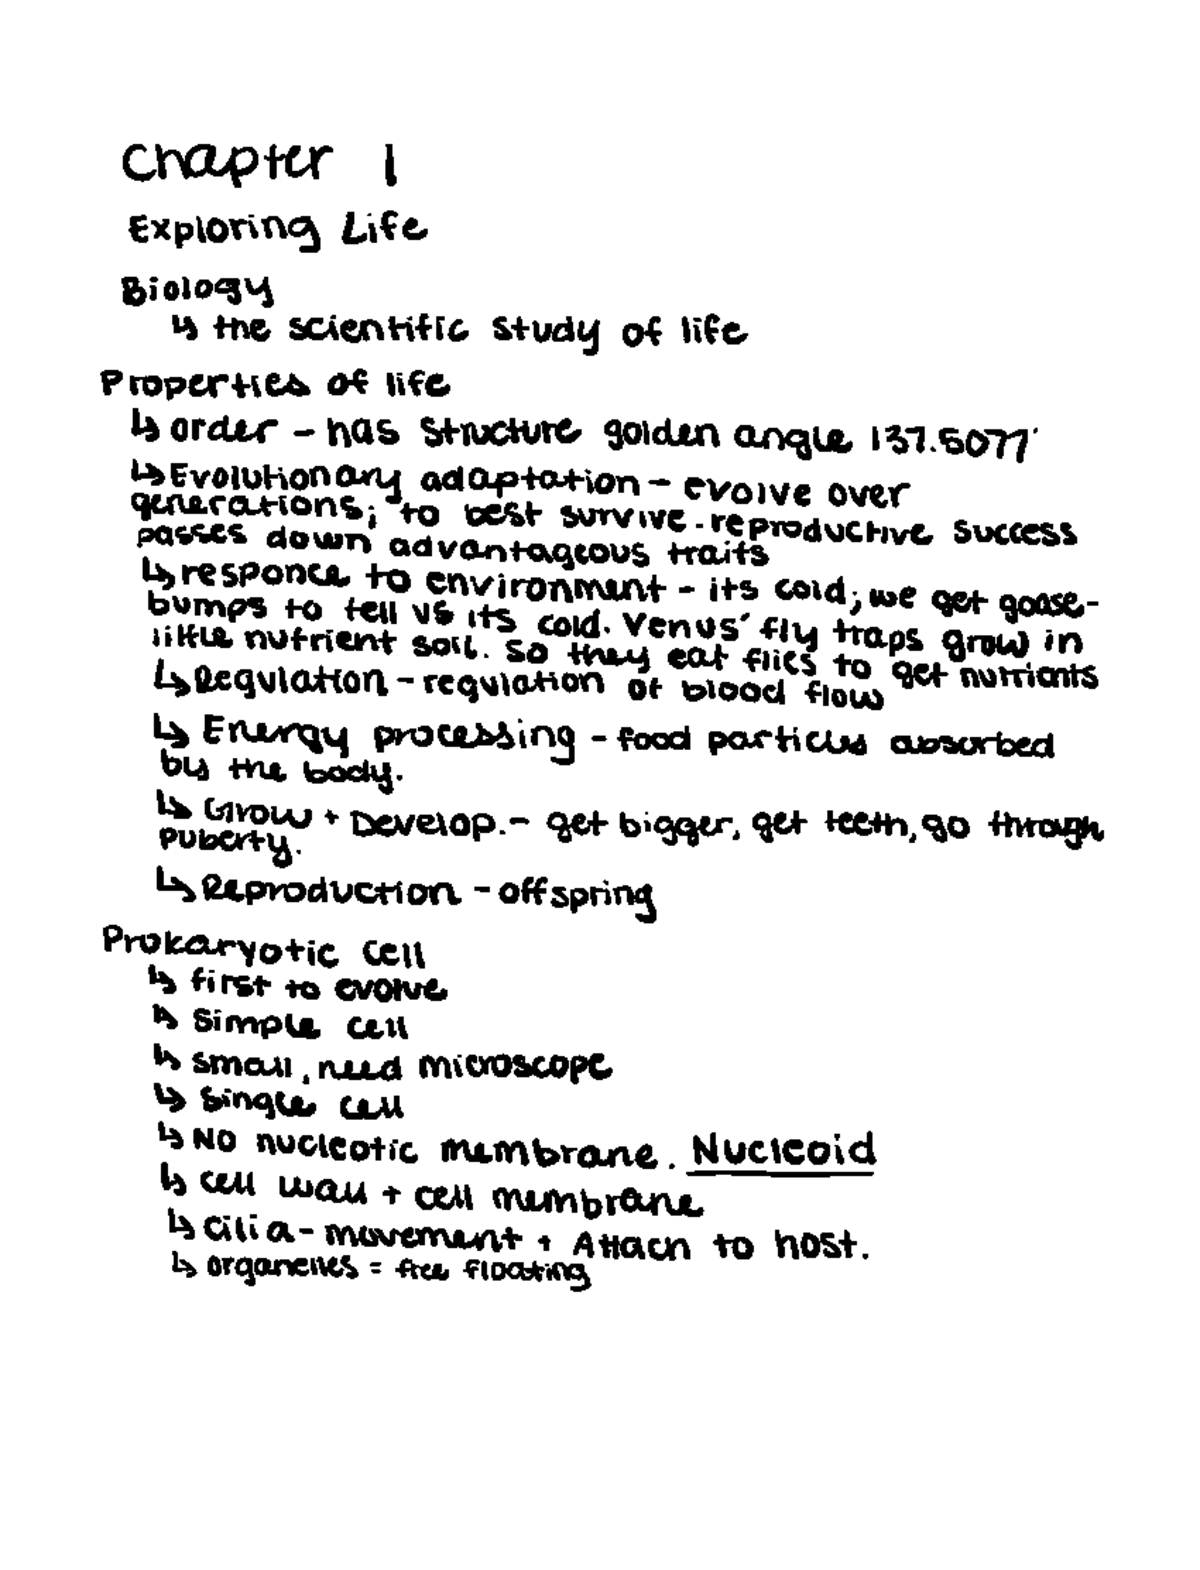 Chapter 1
Exploring Life
Biology
↳ the scientific study of life
Properties of life
↳ order - has structure golden angle 137.5077°
↳ Evolutionary adaptation - evolve over
generations; to best survive. reproductive success
passes down advantageous traits
↳ responce to environment - its cold; we get goose-
bumps to tell us its cold. Venus' fly traps grow in
little nutrient soil. So they eat flies to get nutrients
↳ Regulation - regulation of blood flow
↳ Energy processing - food particles absorbed
by the body.
↳ Grow + Develop. - get bigger, get teeth, go through
puberty.
↳ Reproduction - offspring
Prokaryotic cell
↳ first to evolve
↳ Simple cell
↳ small, need microscope
↳ Single cell
↳ NO nucleotic membrane. Nucleoid
↳ cell wall + cell membrane
↳ cilia - movement + Attach to host.
↳ organelles = free floating